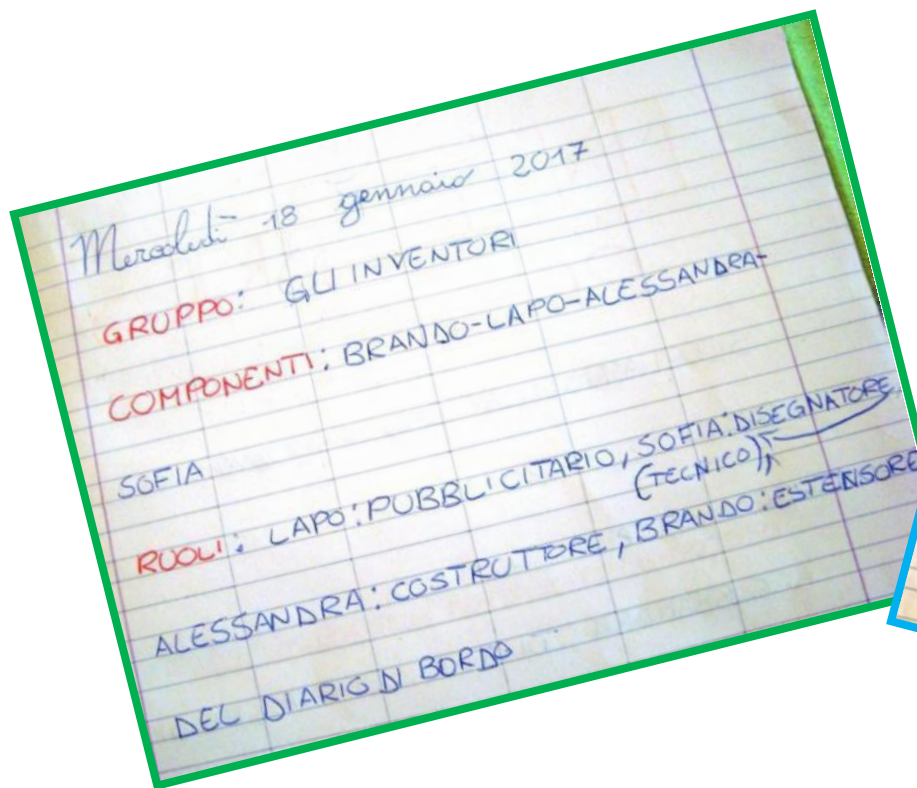 Mercoledì 18 gennaio 2017
GRUPPO: GLI INVENTORI
COMPONENTI: BRANDO-LAPO-ALESSANDRA-
SOFIA
RUOLI: LAPO: PUBBLICITARIO, SOFIA: DISEGNATORE,
(TECNICO),
ALESSANDRA: COSTRUTTORE, BRANDO: ESTENSORE
DEL DIARIO DI BORDO